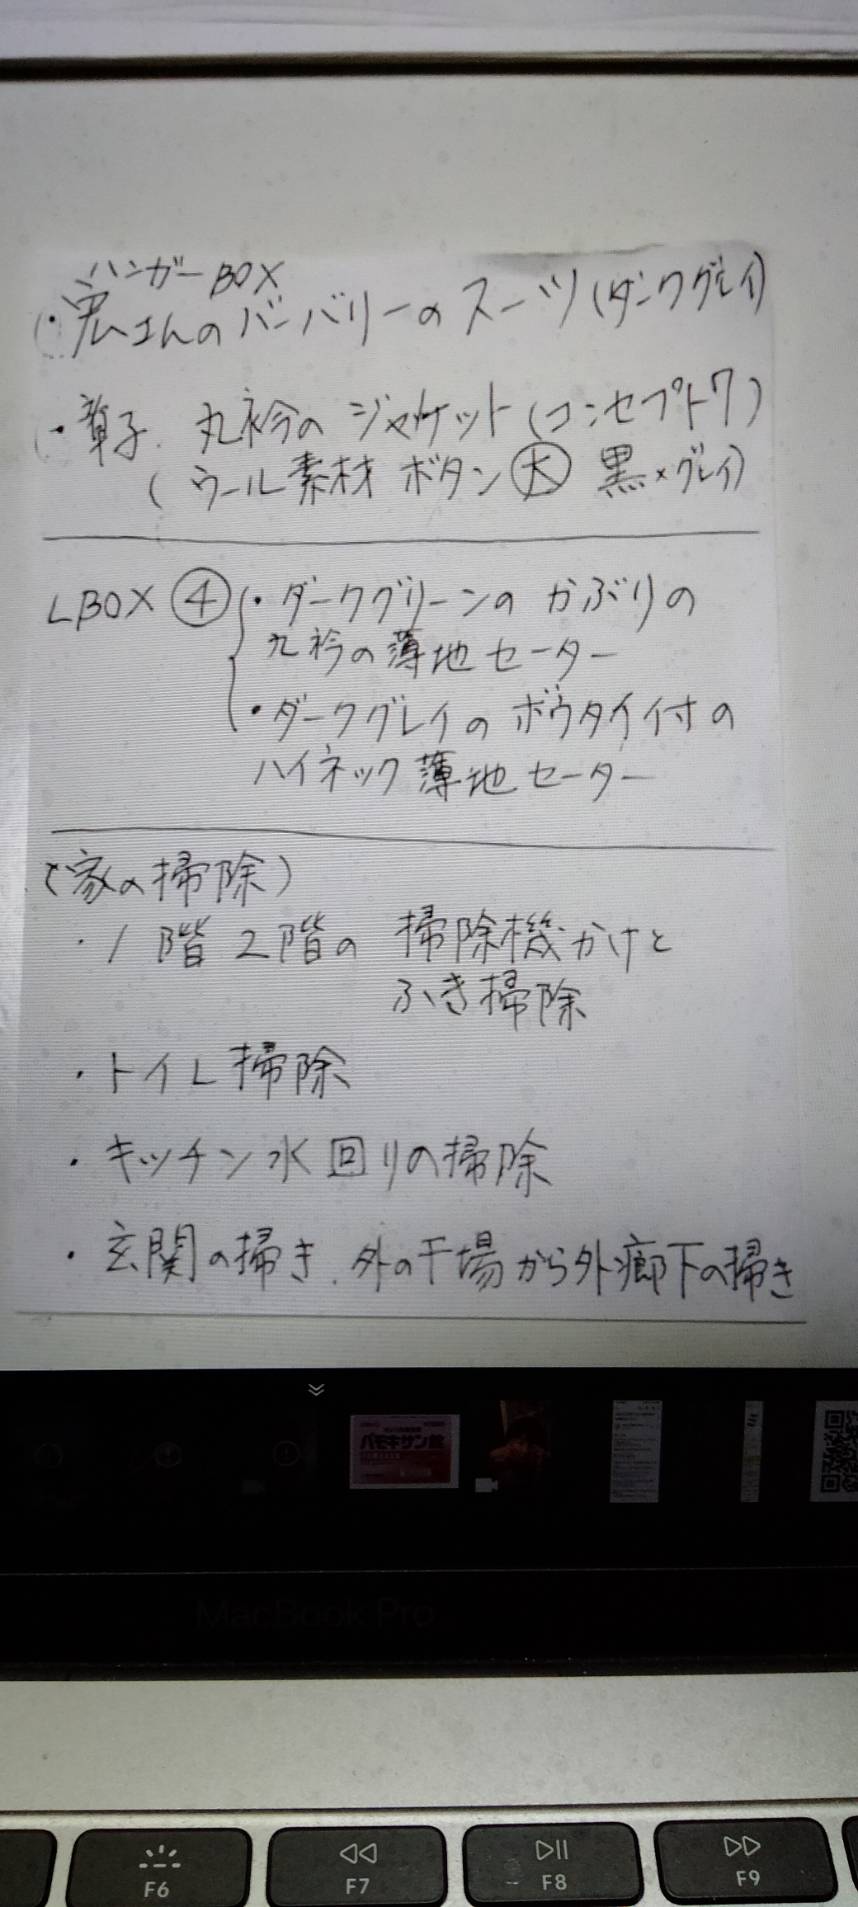 ハンガーBOX
・宏さんのバーバリーのスーツ(ダークグレイ)
・章子.丸衿のジャケット(コンセプト7)
(ウール素材 ボタン大 黒×グレイ)
LBOX ④ ・ダークグリーンのかぶりの
丸衿の薄地セーター
・ダークグレイのボウタイ付の
ハイネック薄地セーター
(家の掃除)
・1階2階の掃除機かけと
ふき掃除
・トイレ掃除
・キッチン水回りの掃除
・玄関の掃き.外の干場から外廊下の掃き
パモキサン錠
MacBook Pro
F6 F7 F8 F9